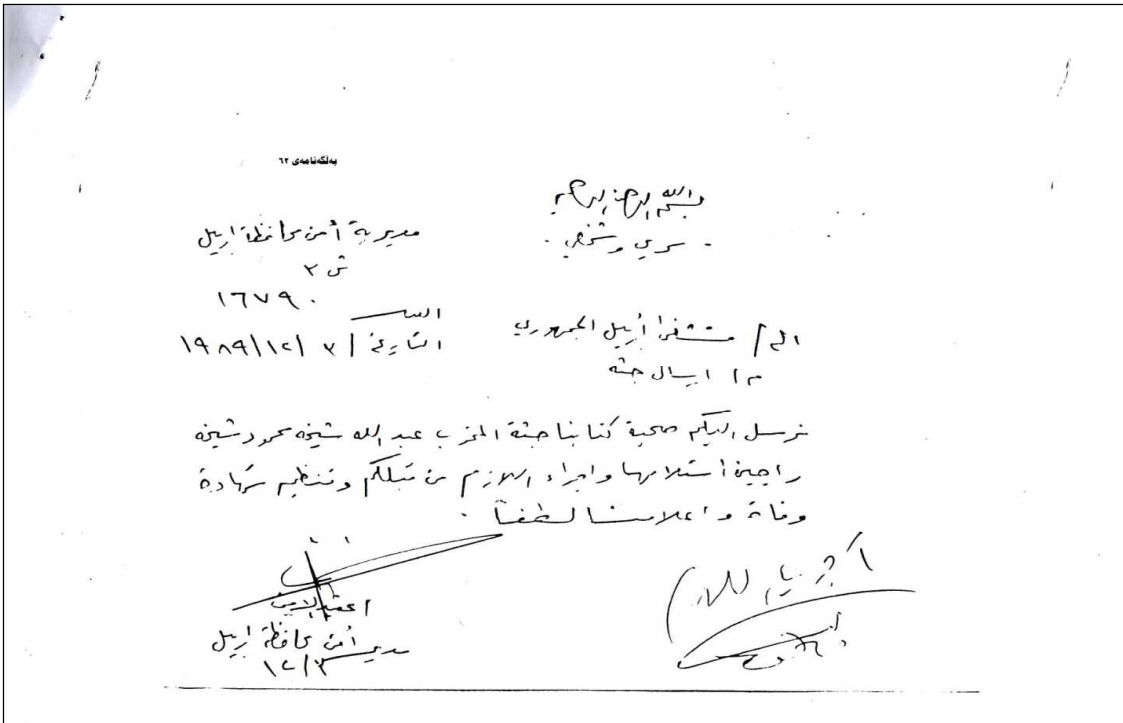 بەڵگەنامەی ٦٢
بسم الله الرحمن الرحيم
سري وشخصي
مديرية أمن محافظة اربيل
ش ٣
١٦٧٩٠
العدد
التاريخ / ٣ /١٢/١٩٨٩
الى/ مستشفى أربيل الجمهوري
م/ ارسال جثة
نرسل اليكم صحبة كتابنا جثة المخرب عبد الله شيخه محمود شيخه
راجين أستلامها واجراء اللازم من قبلكم وتنظيم شهادة
وفاة واعلامنا لطفاً .
مدير أمن محافظة اربيل
١٢/٣